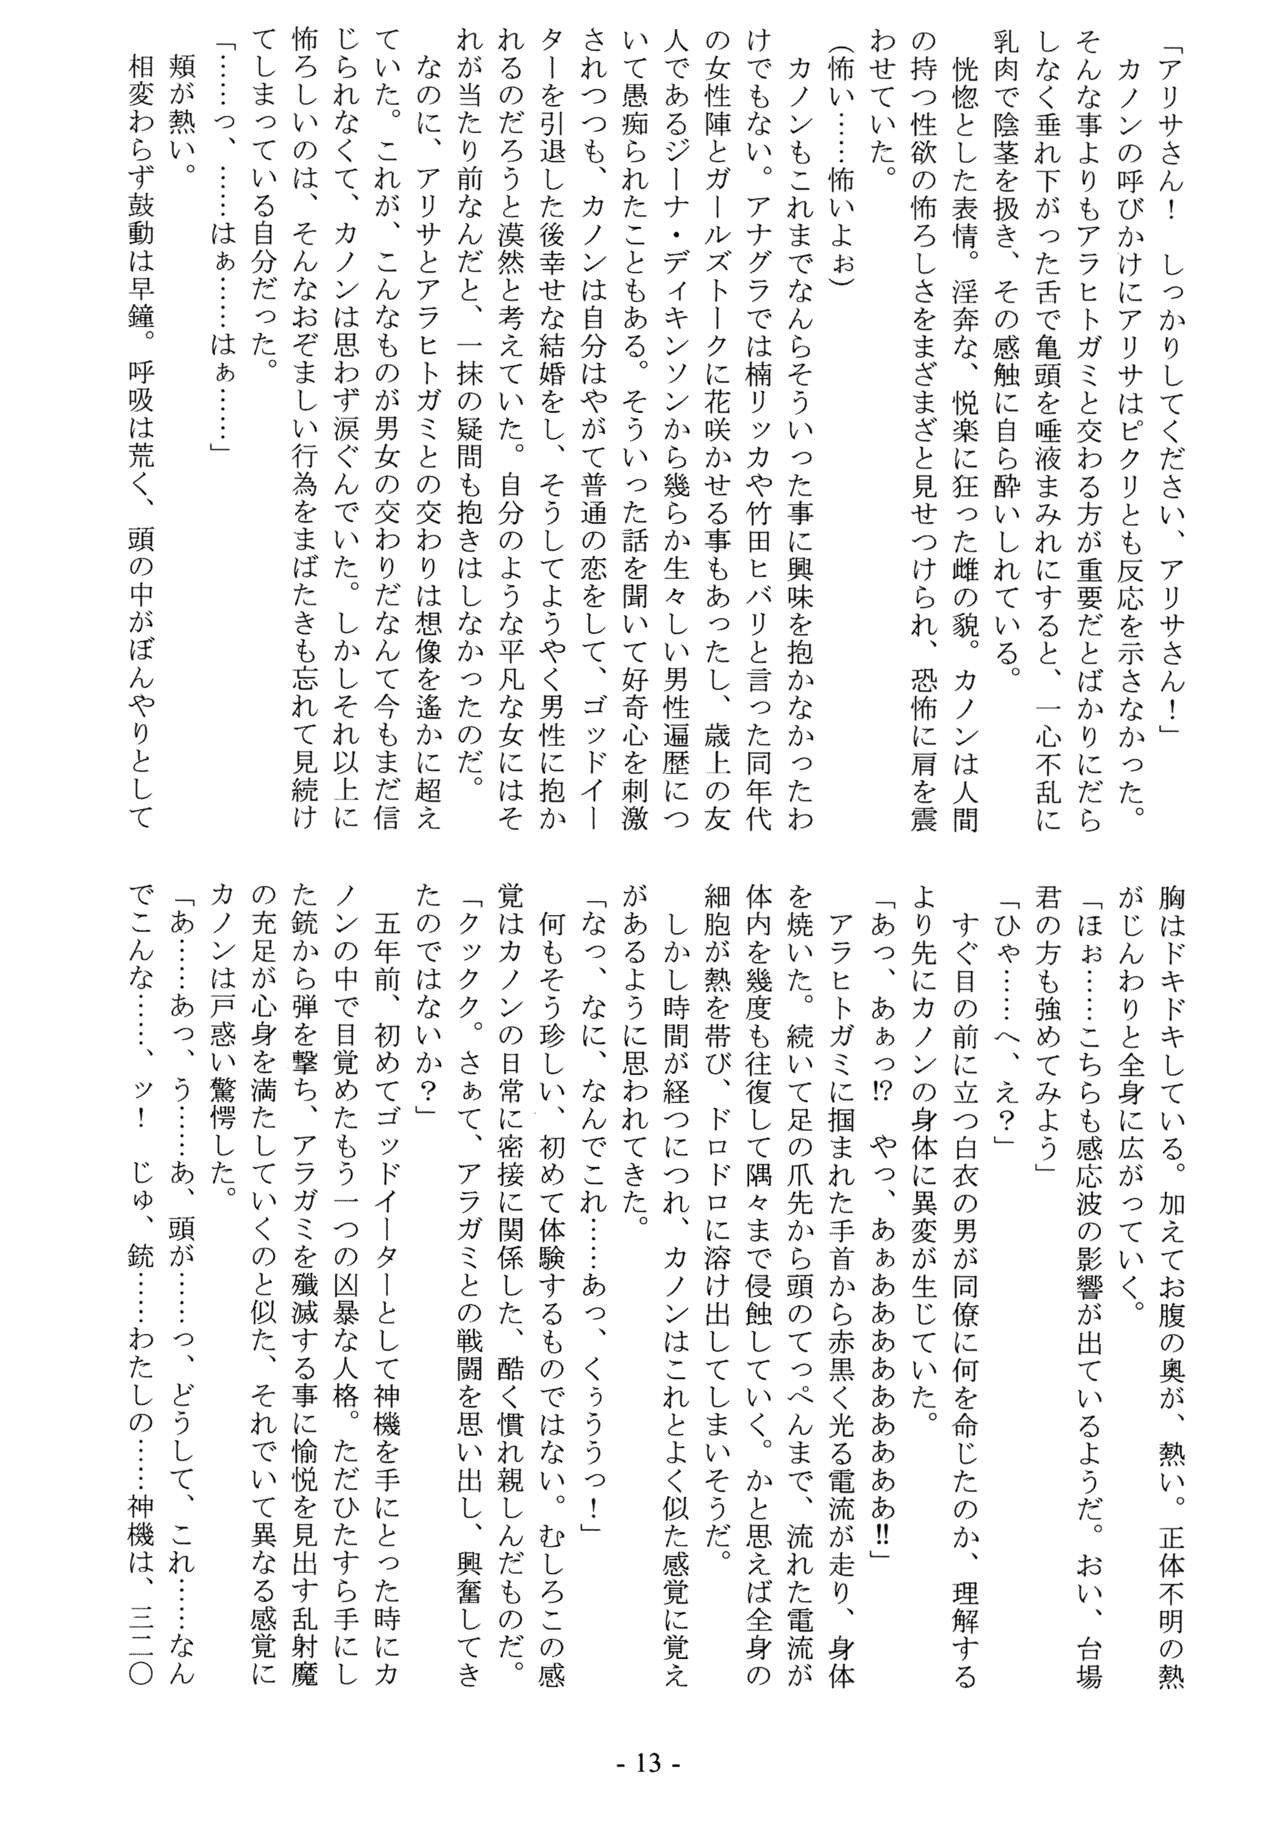 「アリサさん！　しっかりしてください、アリサさん！」
　カノンの呼びかけにアリサはピクリとも反応を示さなかった。
そんな事よりもアラヒトガミと交わる方が重要だとばかりにだら
しなく垂れ下がった舌で亀頭を唾液まみれにすると、一心不乱に
乳肉で陰茎を扱き、その感触に自ら酔いしれている。
　恍惚とした表情。淫奔な、悦楽に狂った雌の貌。カノンは人間
の持つ性欲の怖ろしさをまざまざと見せつけられ、恐怖に肩を震
わせていた。
（怖い……怖いよぉ）
　カノンもこれまでなんらそういった事に興味を抱かなかったわ
けでもない。アナグラでは楠リッカや竹田ヒバリと言った同年代
の女性陣とガールズトークに花咲かせる事もあったし、歳上の友
人であるジーナ・ディキンソンから幾らか生々しい男性遍歴につ
いて愚痴られたこともある。そういった話を聞いて好奇心を刺激
されつつも、カノンは自分はやがて普通の恋をして、ゴッドイー
ターを引退した後幸せな結婚をし、そうしてようやく男性に抱か
れるのだろうと漠然と考えていた。自分のような平凡な女にはそ
れが当たり前なんだと、一抹の疑問も抱きはしなかったのだ。
　なのに、アリサとアラヒトガミとの交わりは想像を遙かに超え
ていた。これが、こんなものが男女の交わりだなんて今もまだ信
じられなくて、カノンは思わず涙ぐんでいた。しかしそれ以上に
怖ろしいのは、そんなおぞましい行為をまばたきも忘れて見続け
てしまっている自分だった。
「……っ、……はぁ……はぁ……」
　頬が熱い。
　相変わらず鼓動は早鐘。呼吸は荒く、頭の中がぼんやりとして
胸はドキドキしている。加えてお腹の奥が、熱い。正体不明の熱
がじんわりと全身に広がっていく。
「ほぉ……こちらも感応波の影響が出ているようだ。おい、台場
君の方も強めてみよう」
「ひゃ……へ、え？」
　すぐ目の前に立つ白衣の男が同僚に何を命じたのか、理解する
より先にカノンの身体に異変が生じていた。
「あっ、あぁっ!?　やっ、あぁあああああああああ!!」
　アラヒトガミに掴まれた手首から赤黒く光る電流が走り、身体
を焼いた。続いて足の爪先から頭のてっぺんまで、流れた電流が
体内を幾度も往復して隅々まで侵蝕していく。かと思えば全身の
細胞が熱を帯び、ドロドロに溶け出してしまいそうだ。
　しかし時間が経つにつれ、カノンはこれとよく似た感覚に覚え
があるように思われてきた。
「なっ、なに、なんでこれ……あっ、くぅううっ！」
　何もそう珍しい、初めて体験するものではない。むしろこの感
覚はカノンの日常に密接に関係した、酷く慣れ親しんだものだ。
「ククク。さぁて、アラガミとの戦闘を思い出し、興奮してき
たのではないか？」
　五年前、初めてゴッドイーターとして神機を手にとった時にカ
ノンの中で目覚めたもう一つの凶暴な人格。ただひたすら手にし
た銃から弾を撃ち、アラガミを殲滅する事に愉悦を見出す乱射魔
の充足が心身を満たしていくのと似た、それでいて異なる感覚に
カノンは戸惑い驚愕した。
「あ……あっ、う……あ、頭が……っ、どうして、これ……なん
でこんな……、ッ！　じゅ、銃……わたしの……神機は、三二〇
- 13 -